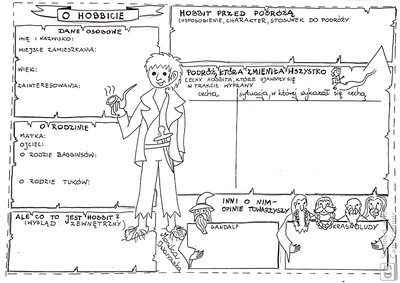 O HOBBICIE
DANE OSOBOWE
IMIĘ I NAZWISKO:
MIEJSCE ZAMIESZKANIA:
WIEK:
ZAINTERESOWANIA:
O RODZINIE
MATKA:
OJCIEC:
O RODZIE BAGGINSÓW:
O RODZIE TUKÓW:
ALE CO TO JEST HOBBIT?
(WYGLĄD ZEWNĘTRZNY)
HOBBIT PRZED PODRÓŻĄ
(USPOSOBIENIE, CHARAKTER, STOSUNEK DO PODRÓŻY)
PODRÓŻ, KTÓRA ZMIENIŁA WSZYSTKO
CECHY HOBBITA, KTÓRE UJAWNIŁY SIĘ
W TRAKCIE WYPRAWY
cecha
sytuacja, w której wykazał się cechą
INNI O NIM-
OPINIE TOWARZYSZY
GANDALF
KRASNOLUDY